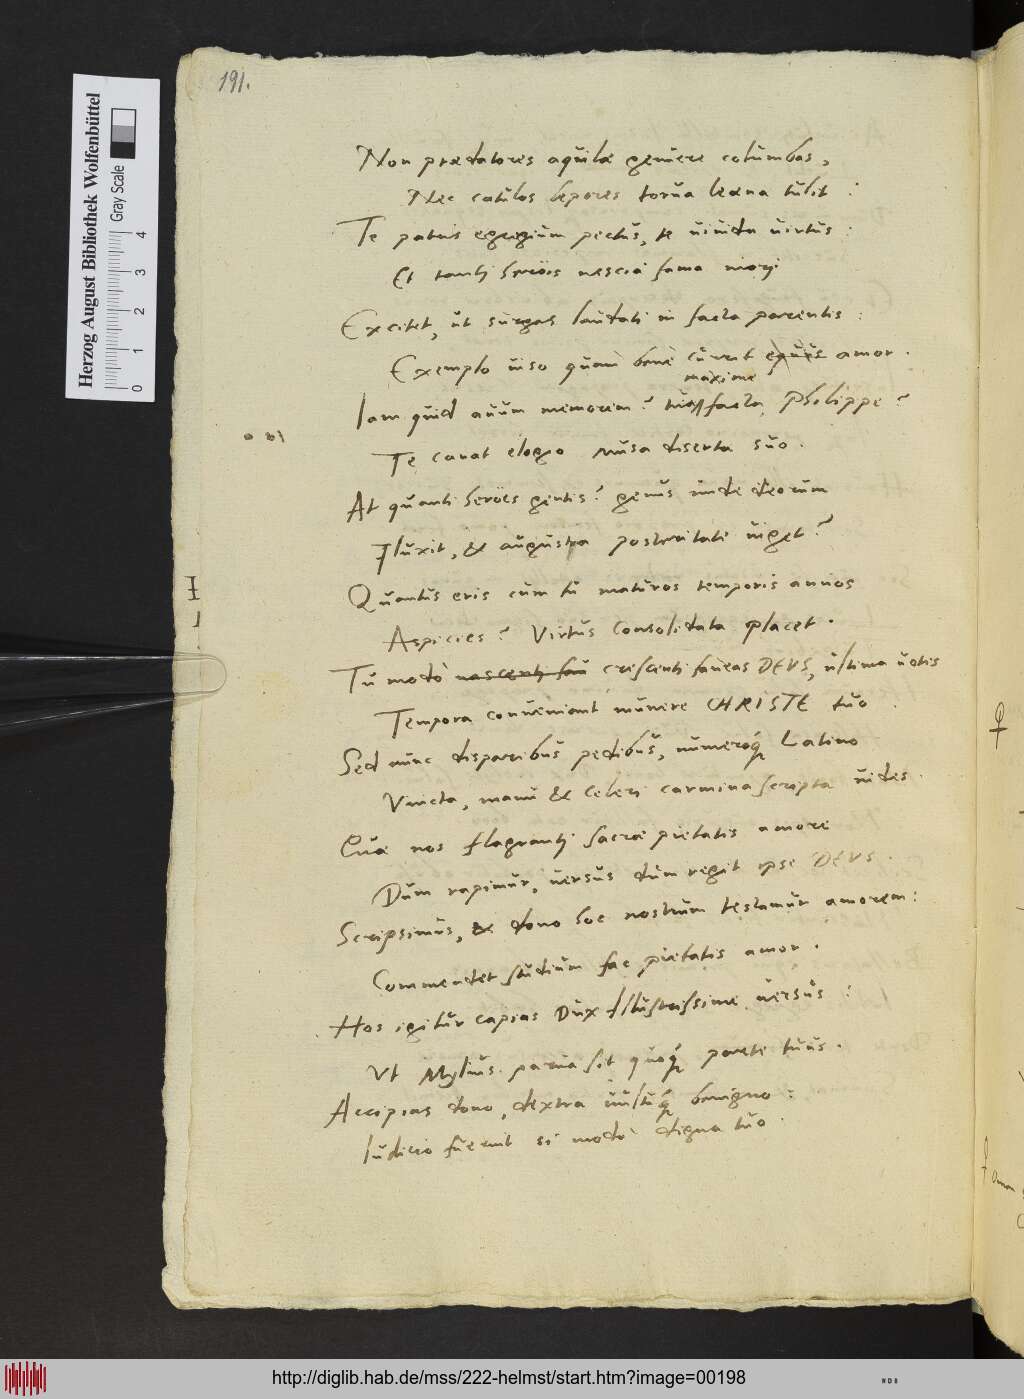 191.
Non prædatores aquilæ genuere columbas,
Nec catulos lepores torua leæna tulit:
Te patris egregium pectus, te uiuida uirtus:
Et tanti herōis nescia fama mori
Excitet, ut surgas laudati in facta parentis:
Exemplo uiso quam bene currit equus amor.
maxime
Iam quid auum memorem? tua facta, Philippe?
Te canat elogio Musa diserta suo.
At quanti heröes gentis? genus unde deorum
Fluxit, & augusta posteritate uiget?
Quantus eris cum tu maturos temporis annos
Aspicies? Virtus consolidata placet.
Tu modò nascenti fau crescenti faueas DEVS, ultima uotis
Tempora conueniant munere CHRISTE tuo
Sed nunc disparibus pedibus, numeroq́ Latino
Vincta, manu & celeri carmina scripta uides.
Quæ nos flagranti sacræ pietatis amore
Dum rapimur, uersus dum regit ipse DEVS.
Scripsimus, & dono hoc nostrum testamur amorem:
Commendet studium fac pietatis amor.
Hos igitur capias Dux Illustrissime uersus:
Vt Mylius parua sit quoq́ parte tuus.
Accipias dono, dextra uultuq́ benigno:
Iudicio fuerint si modò digna tuo.
Herzog August Bibliothek Wolfenbüttel
Gray Scale
0 1 2 3 4
http://diglib.hab.de/mss/222-helmst/start.htm?image=00198